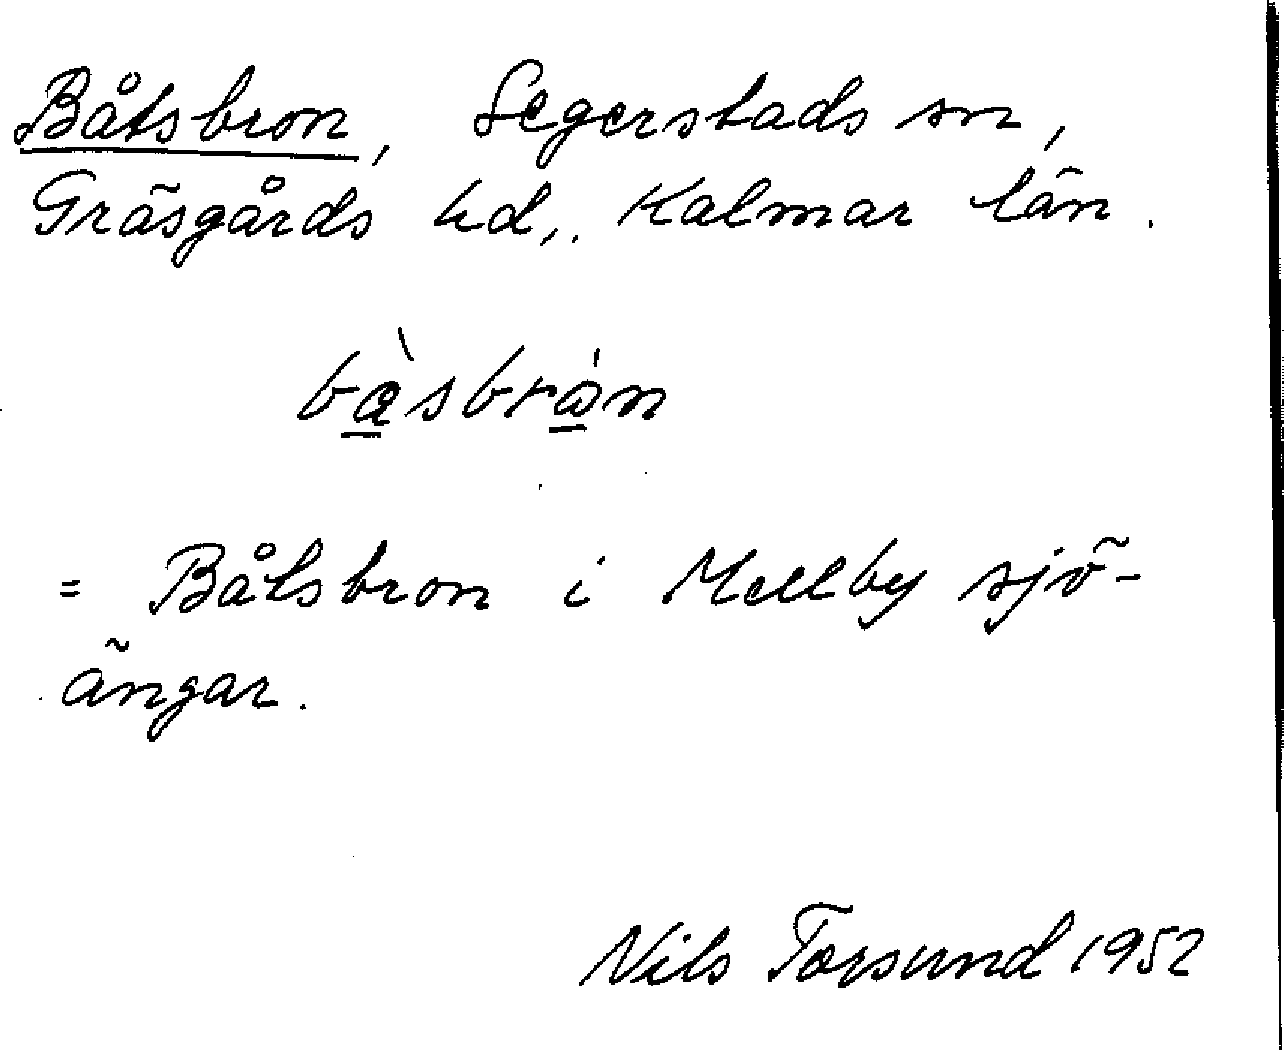 Båtsbron, Segerstads sn,
Gräsgårds hd,. Kalmar län.
bàsbrón
= Båtsbron i Mellby sjö-
ängar.
Nils Torsund 1952